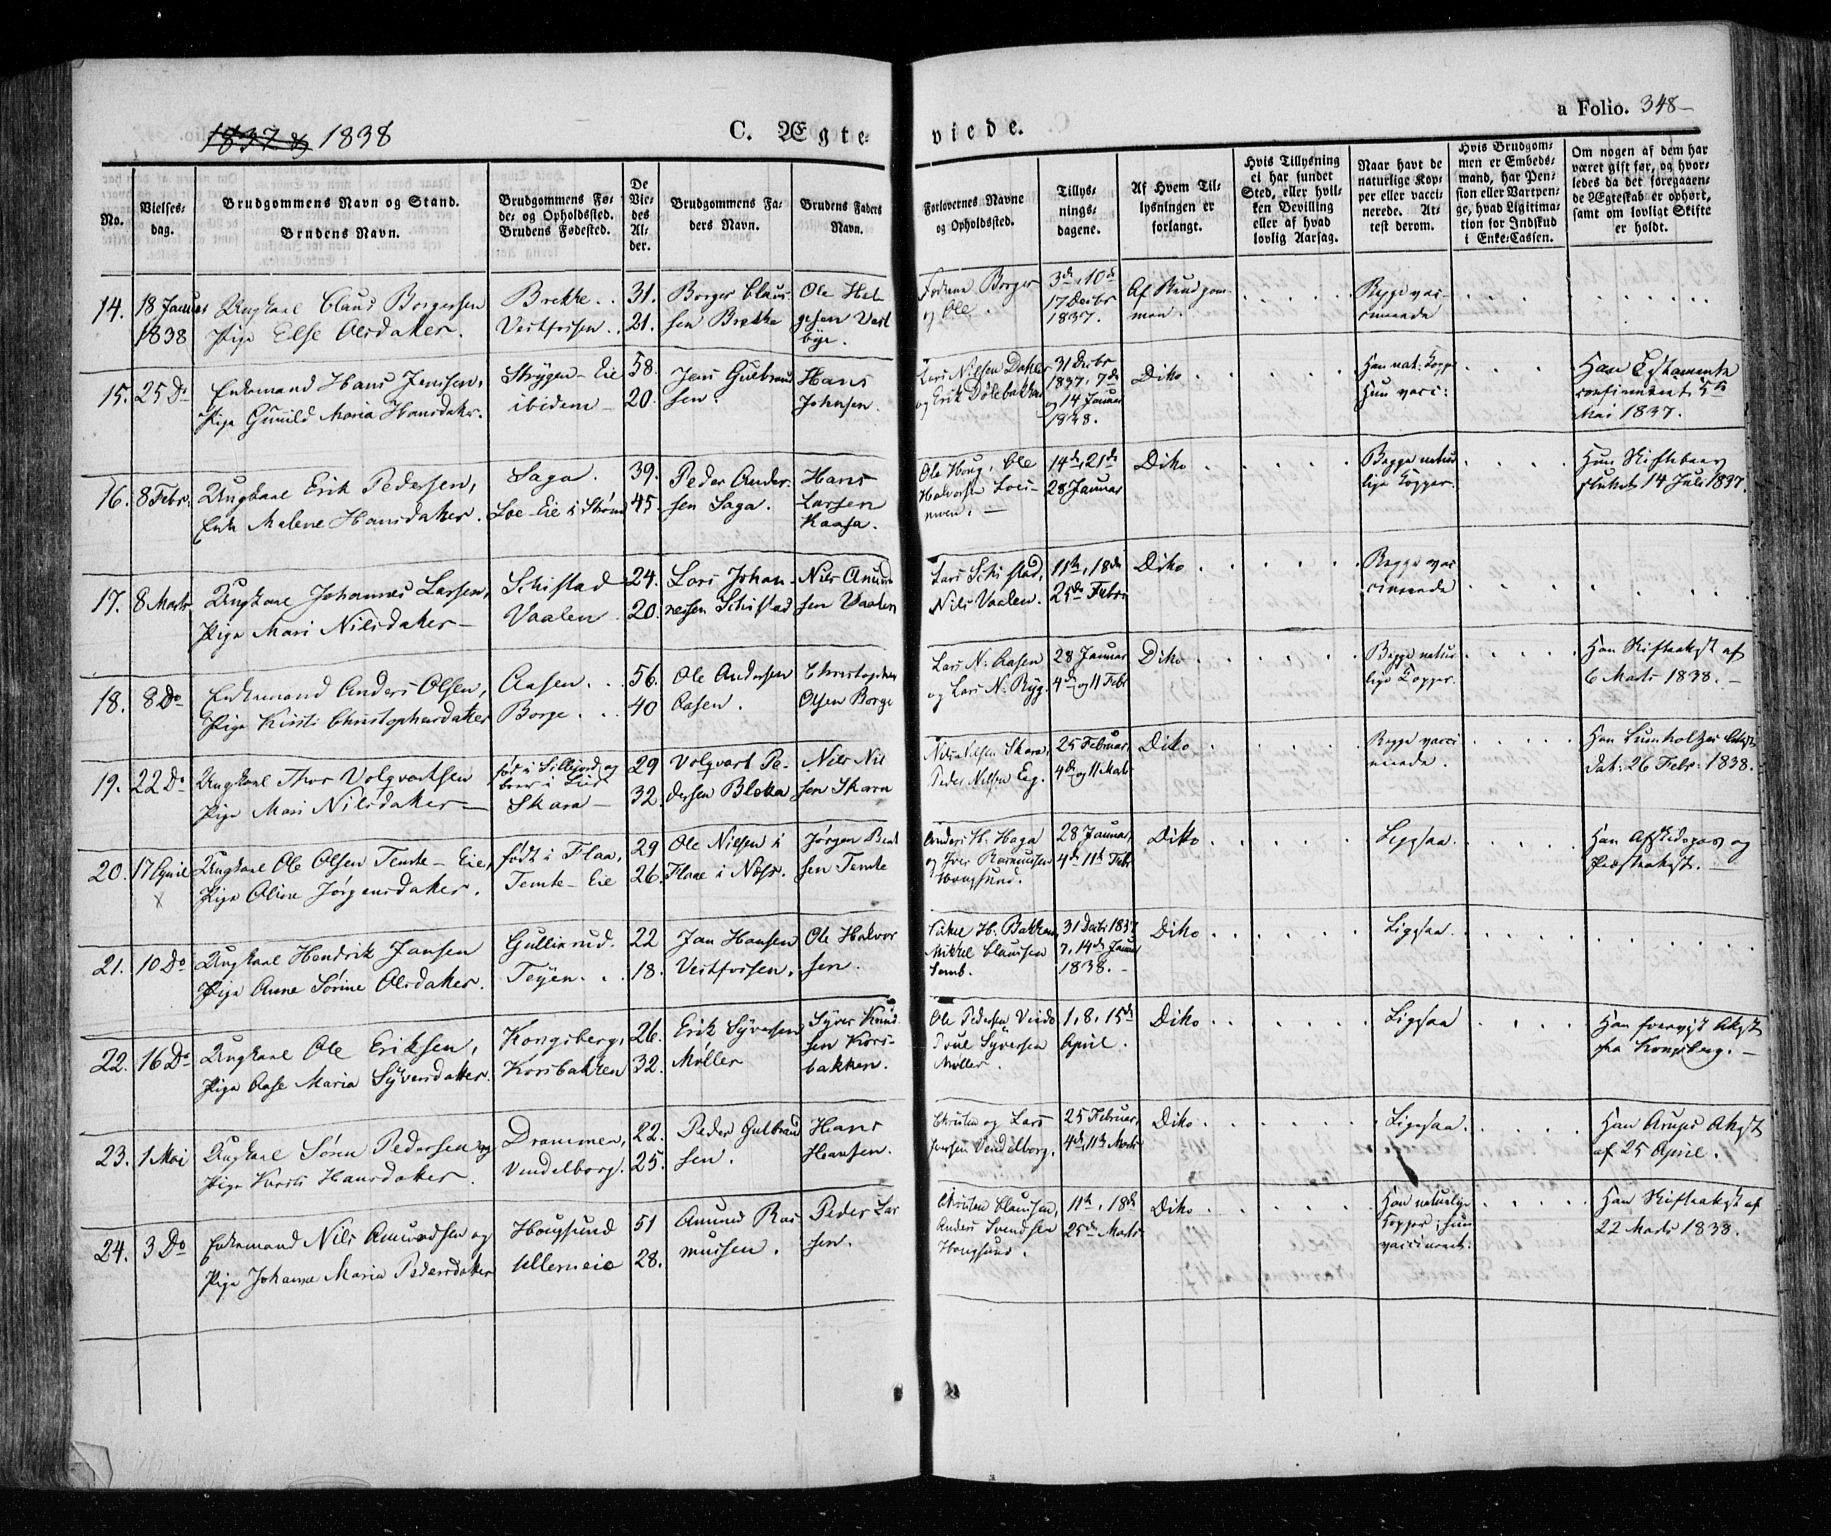 1837 & 1838
C. Ægte
viede.
a Folio. 348
No.
Vielses-
dag.
Brudgommens Navn og Stand.
Brudens Navn.
Brudgommens Fø-
de- og Opholdssted.
Brudens Fødested.
De
Vie-
des
Al-
der.
Brudgommens Fa-
ders Navn.
Brudens Faders
Navn.
Forlovernes Navne
og Opholdssted.
Tillys-
nings-
dagene.
Af Hvem Til-
lysningen er
forlangt.
Hvis Tillysning
ei har fundet
Sted, eller hvil-
ken Bevilling
eller af hvad
lovlig Aarsag.
Naar havt de
naturlige Kop-
per eller vacci-
nerede. At-
test derom.
Hvis Brudgom-
men er Embeds-
mand, har Pen-
sion eller Vartpen-
ge, hvad Legitima-
tion for Indskud
i Enke-Cassen.
Om nogen af dem har
været gift før, og hvor-
ledes da det foregaaen-
de Ægteskab er ophørt,
samt om lovligt Skifte
er holdt.
14. 18 Januar
1838
Ungkarl Claus Borgersen
Pige Else Olsdatter.
Brekke
Vestfossen
31.
21.
Borger Claus-
sen Brekke
Ole Hel-
gesen Vest
bye.
Fædrene Borger
og Ole.
3de, 10de
17 Decbr
1837.
Af Brudgom-
men.
Begge vac-
cinerede
15. 25 Do
Enkemand Hans Jensen,
Pige Gunild Maria Hansdatter.
Strygen-Eie
ibidem
58.
20.
Jens Gulbrand
sen.
Hans
Johnsen.
Lars Nilsen Dahler
og Erik Dölebakken
31 Decbr
1837, 7de
og 14 Januar
1838.
Diko
Han nat: Kopp
Hun vacc:
Han Testamente
confirmeret 5te
Mai 1837.
16. 8 Febr.
Ungkarl Erik Pedersen,
Enke Malene Hansdatter.
Saga.
Loe-Eie i Strøm
39.
45.
Peder Ander
sen Saga.
Hans
Larsen
Kaasa.
Ole Houg, Ole
Halvorsen Loes-
moen.
14de, 21de
28 Januar
Diko
Begge natur
lige Kopper.
Hun Skiftebrev
sluttet 14 Juli 1837.
17. 8 Marts
Ungkarl Johannes Larsen,
Pige Mari Nilsdatter
Schistad
Vaalen
24.
20.
Lars Johan-
nessen Schistad
Nils Amund
sen Vaalen
Lars Schistad,
Nils Vaalen.
11te, 18de
25de Febr
Diko
Begge vac
cinerede
18. 8 Do
Enkemand Anders Olsen,
Pige Kirsti Christophersdatter
Aasen.
Borge.
56.
40
Ole Andersen
Aasen.
Christopher
Olsen Borge
Lars N. Aasen
og Lars N. Ryg.
28 Januar
4de og 11 Febr
Diko
Begge natur
lige Kopper.
Han Skifteakst af
6 Marts 1838.
19. 22 Do
Ungkarl Thor Volqvartsen
Pige Mari Nilsdatter
født i Sillejord og
boer i Lier
Skara
29
32.
Volqvart Pe-
dersen Blekka
Nils Nil
sen Skara
Nils Nilsen Skara,
Peder Nilsen Eeg.
25 Februar,
4de og 11 Marts
Diko
Begge vacci
nerede.
Han Lumholtzes Attest
dat: 26 Febr: 1838.
20. 17 April
x
Ungkarl Ole Olsen Temte-Eie,
Pige Oline Jørgensdatter.
født i Flaa,
Temte-Eie
29
26.
Ole Nilsen i
Flaae i Næss.
Jørgen Bent
sen Temte
Anders H. Haga
og Iver Rasmussen
Hougsund.
28 Januar,
4de, 11te Febr
Diko
Ligesaa.
Han Afskedspas og
Præsteakst.
21. 10 Do
Ungkarl Hendrik Jansen
Pige Anne Sörine Olsdatter.
Gullixrud.
Teyen.
22
18.
Jan Hansen
Vestfossen.
Ole Halvor
sen.
H. Bakken
Mikkel Claussen
Semb.
31 Decbr 1837
7, 14de Januar
1838.
Diko
Ligesaa.
22. 16 Do
Ungkarl Ole Eriksen,
Pige Aase Maria Syversdatter.
Kongsberg,
Korsbakken
26.
32.
Erik Syversen
Møller
Syver Knud
sen Kors-
bakken.
Ole Pedersen
Poul Syversen
Møller.
1, 8, 15de
April.
Diko
Ligesaa
Han Akst
fra Kongsberg.
23. 1 Mai
Ungkarl Sören Pedersen og
Pige Kirsti Hansdatter.
Drammen,
Vendelborg.
22.
25.
Peder Gulbrand
sen.
Hans
Hansen.
Christen og Lars
Iversen Vendelborg.
25 Februar,
4de, 11te Marts
Diko
Ligesaa.
Han Arups Akst
af 25 April.
24. 3 Do
Enkemand Nils Amundsen og
Pige Johanne Maria Pedersdatter
Hougsund
Ullerneie
51
28.
Amund Ras
mussen.
Peder Lar
sen.
Christen Claussen,
Anders Svendsen
Hougsund.
11te, 18de
25de Marts
Diko
Han naturlige
Kopper; hun
vaccineret.
Han Skifteakst af
22 Marts 1838.